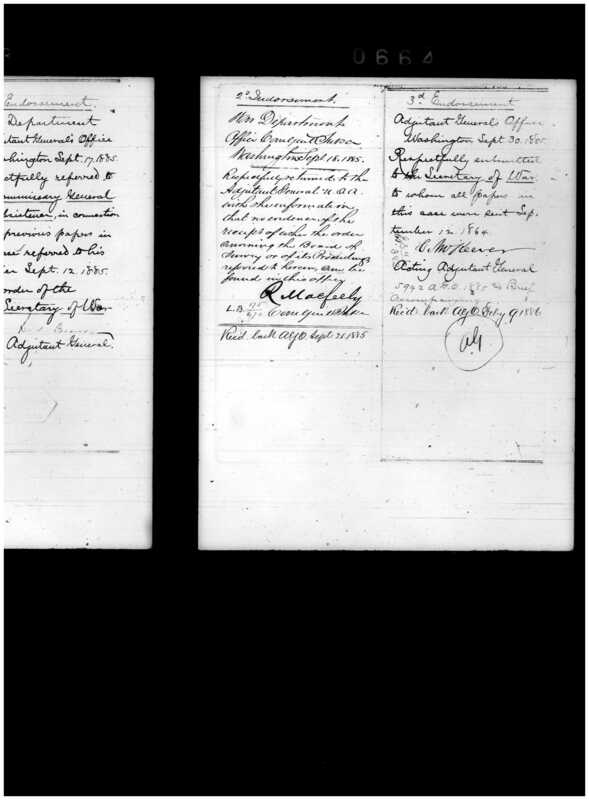 0664
Endorsement.
Department
tant General's Office
hington Sept. 17, 1885.
ectfully referred to
mmissary General
bsistence, in connection
previous papers in
se referred to his
ce Sept. 12. 1885.
order of the
Secretary of War
Adjutant General.
2d Endorsement.
War Department
Office Com Gen'l Subsce
Washington Sept 18. 1885.
Respectfully returned to the
Adjutant General U.S.A.
with the information
that no evidence of the
receipt of either the order
convening the Board of
Survey or of its Proceedings
referred to herein, can be
found in this office.
R Macfeely
L.B. Com Gen'l Subsce
Recd back A.G.O. Sept. 21. 1885
3d Endorsement
Adjutant General's Office.
Washington Sept. 30. 1885.
Respectfully submitted
to the Secretary of War.
to whom all papers in
this case were sent Sep-
tember 12. 1884.
C. McKeever
Acting Adjutant General
5942 A.G.O. 1885 & Brief
accompanying
Rec'd. back A.G.O. Feby 9. 1886
AG.